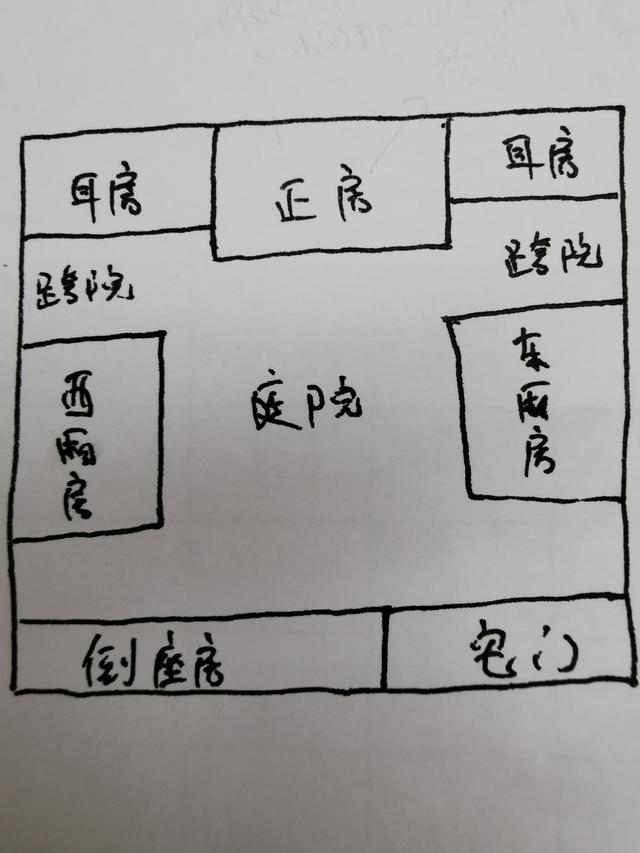 耳房
正房
耳房
跨院
跨院
西厢房
庭院
东厢房
倒座房
宅门